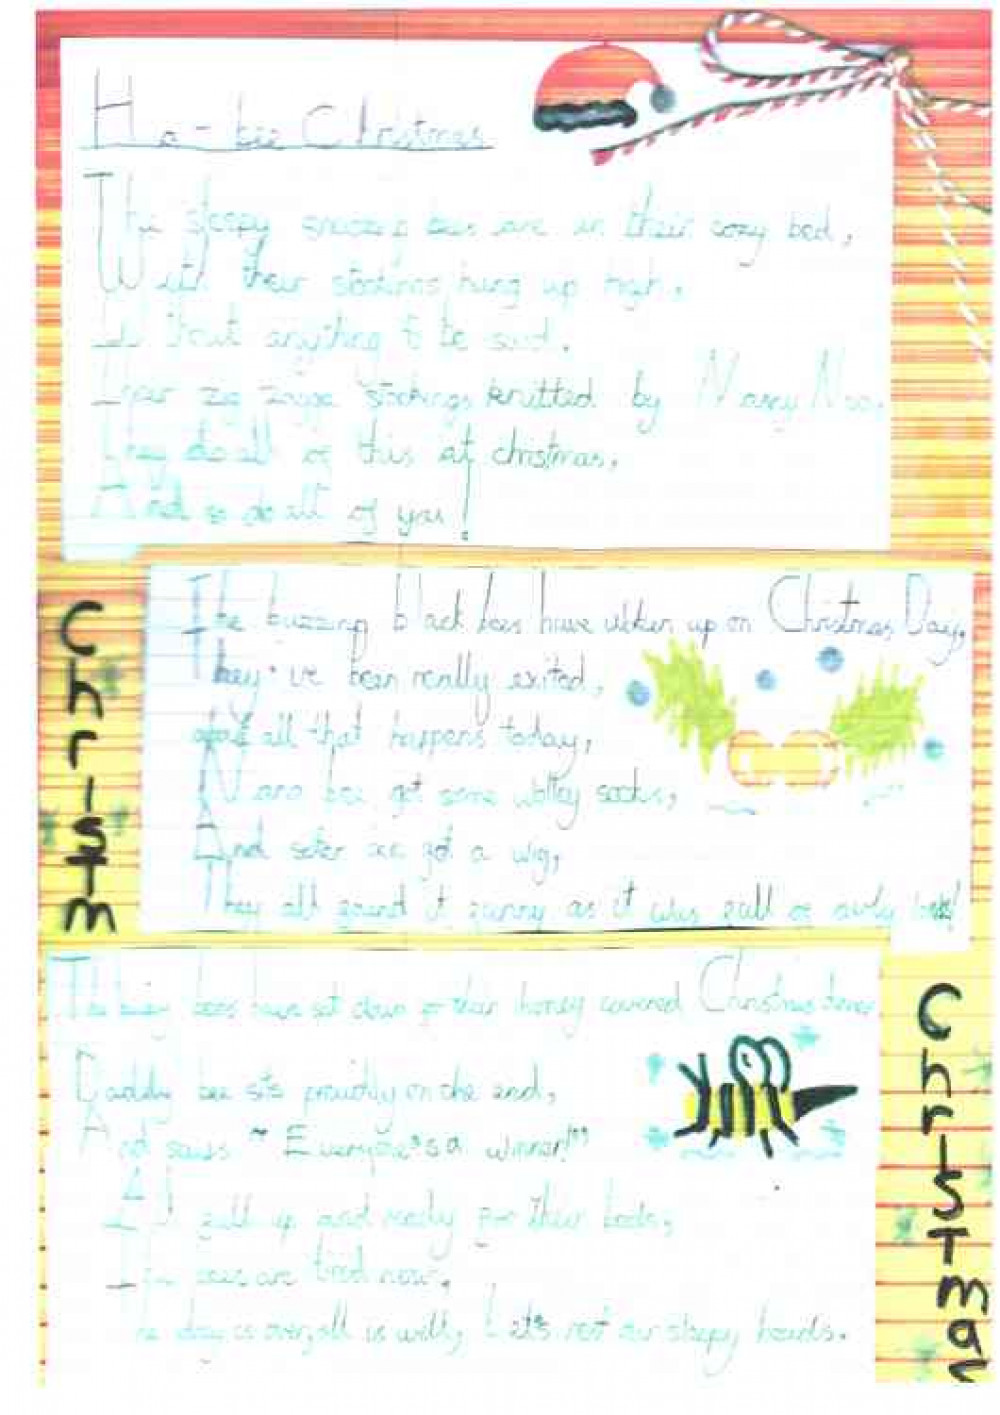 Ha-bee Christmas
The sleepy snoozing bees are in their cozy bed,
With their stockings hung up high,
Without anything to be said.
Their zig zagge stockings knitted by Nancy Noo.
They do all of this at christmas,
And so do all of you!
Christm
The buzzing black bees have woken up on Christmas Day,
They've been really exited,
all that happens today,
Nana bee got some wolley socks,
And sster bee got a wig,
They all found it funny as it was full of curly
The busy bees have set down for their honey covered Christmas
Daddy bee sits proudly on the end,
And says "Everyone's a winner!"
All full up and ready for their beds,
The bees are tired now,
The day is over, all is well, Let's rest our sleepy heads.
Christmas